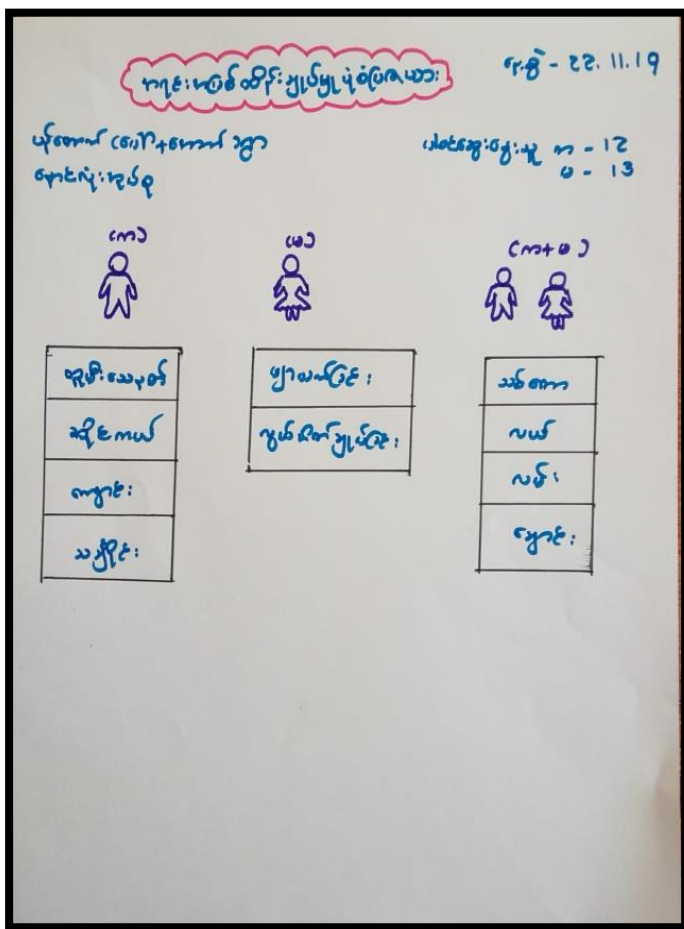 အရင်းအမြစ်ထိန်းချုပ်မှုပုံစံပြဇယား
နေ့စွဲ - 22.11.19
ပန်တောက် (ပေါ် + အောက်) ရွာ
နောင်လုံးအုပ်စု
ပါဝင်ဆွေးနွေးသူ ကာ - 12
မ - 13
(ကာ)
(မ)
(ကာ + မ)
တူမီးသေနတ်
ဆိုင်ကယ်
ကျောင်း
သချိုင်း
ဖျာယက်ခြင်း
လွယ်အိတ်ချုပ်ခြင်း
သစ်တော
လယ်
လမ်း
ချောင်း